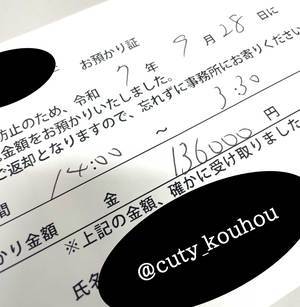 お預かり証
防止のため、令和 7 年 9 月 28 日に
金額をお預かりいたしました。
ご返却となりますので、忘れずに事務所にお寄りください
間 14:00 ～ 3:30
かり金額 金 136000 円
※上記の金額、確かに受け取りました
氏名
@cuty_kouhou